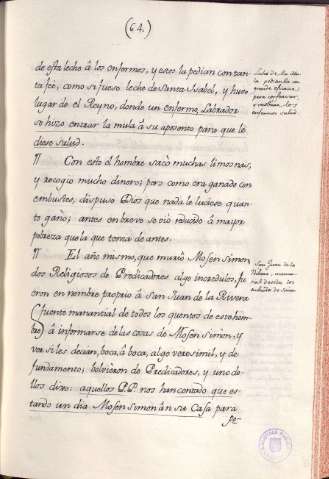 (64.)
de esta leche à los enfermos, y estos la pedian con tan-
ta fè, como si fuese leche de Santa Isabel, y huvo
lugar de el Reyno, donde un enfermo Labrador
se hizo entrar la mula à su aposento para que le
diese salud.
¶ Con esto el hombre sacò muchas limosnas,
y recogio mucho dinero; pero como era ganado con
embustes, dispuso Dios que nada le luciese quan-
to ganò; antes en breve se viò reducido à mayor
pobreza que la que tenia de antes.
¶ El año mesmo, que muriò Mosen Simon
dos Religiosos de Predicadores algo incredulos, fu
eron en nombre proprio à San Juan de la Rivera
(fuente manantial de todos los quentos de este hom-
bre) à informarse de las cosas de Mosen Simon, y
ver si les decian, boca, à boca, algo verosimil, y de
fundamento; bolvieron de Predicadores, y uno de
llos dixo: aquellos P.P. nos han contado que es-
tando un dia Mosen Simon en su Casa para
leche de la mu-
la pedian los
para
enfermos salud
San Juan de la
Rivera, manan-
tial de todos los
de Simon